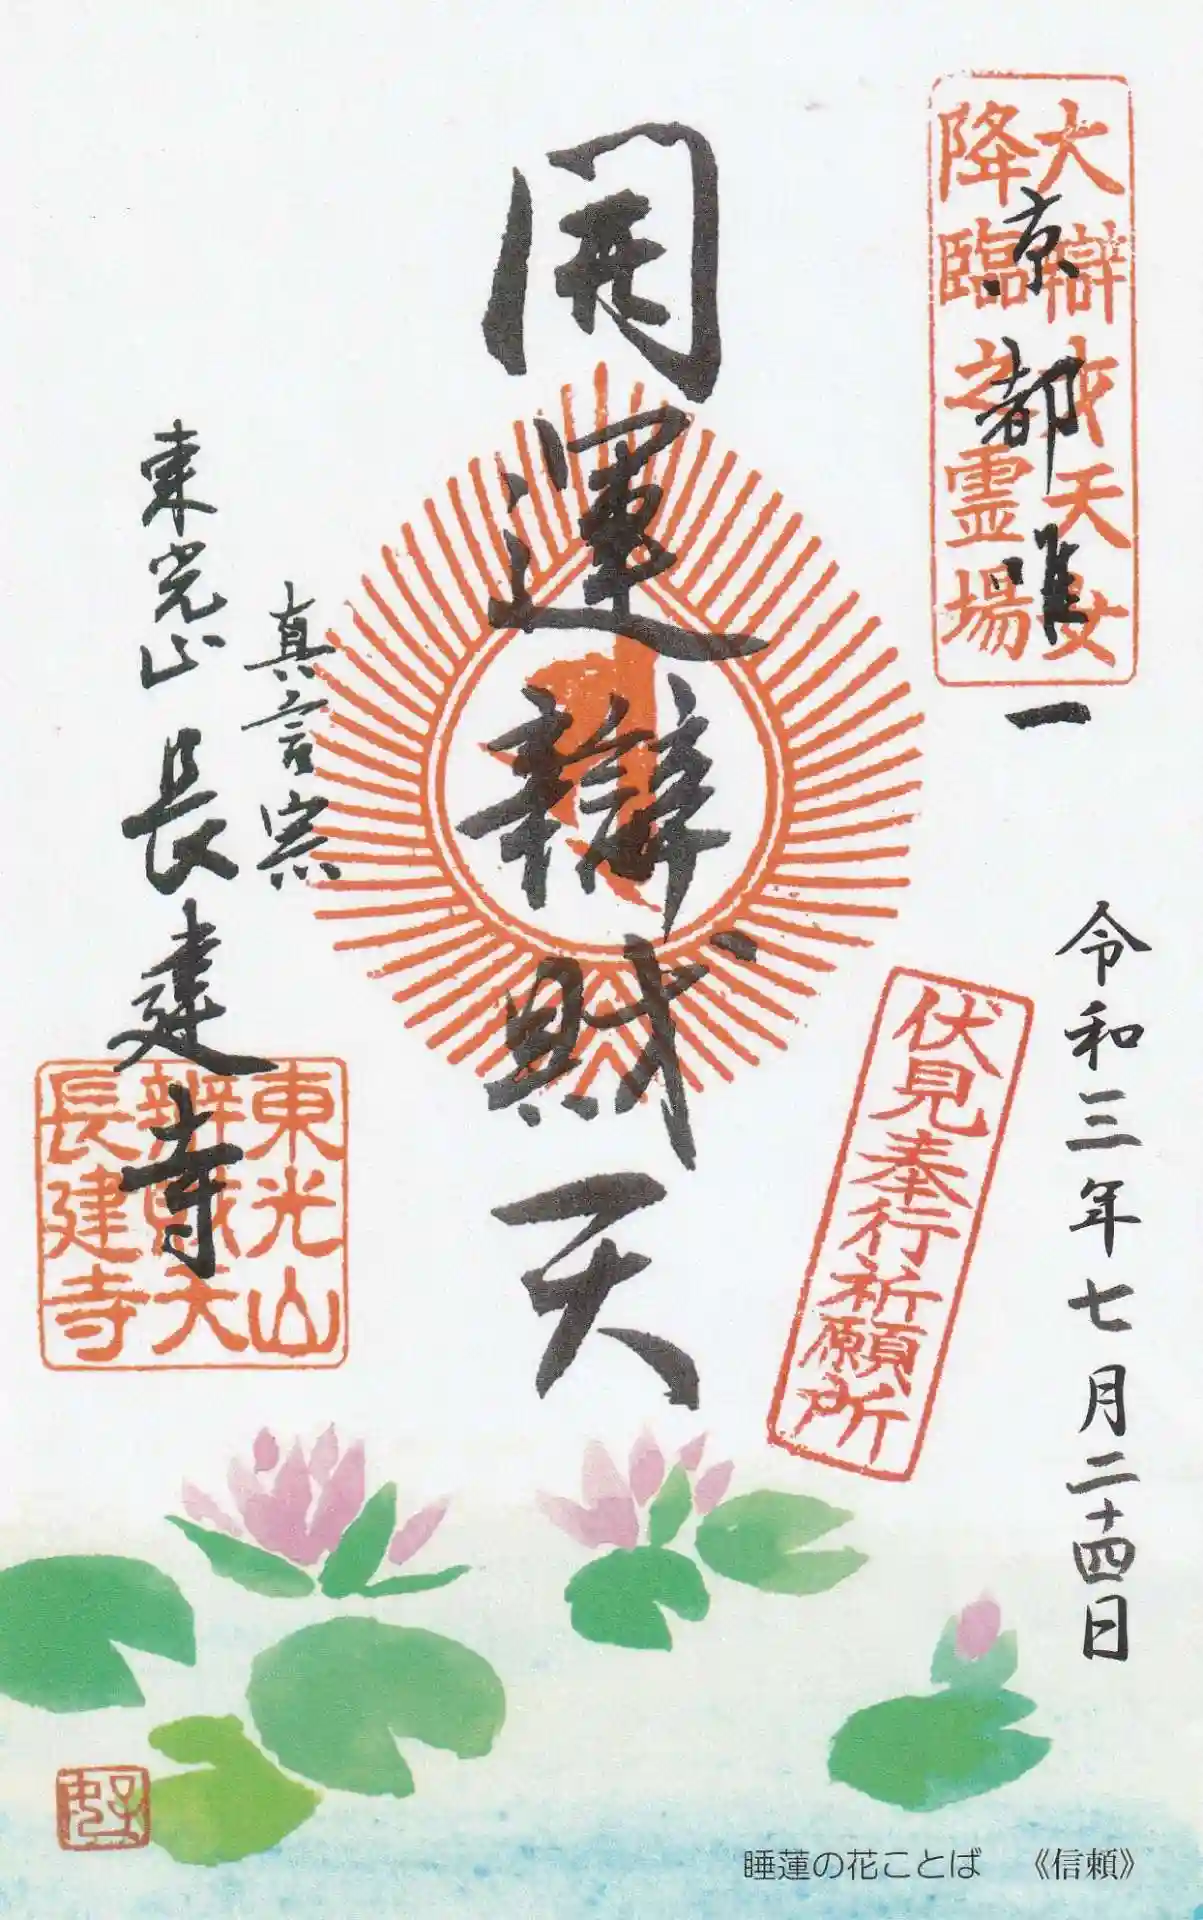 大辯才天女
降臨之霊場
京都唯一
令和三年七月二十四日
伏見奉行祈願所
開運辯財天
真言宗
東光山 長建寺
東光山
辨財天
長建寺
睡蓮の花ことば 《信頼》